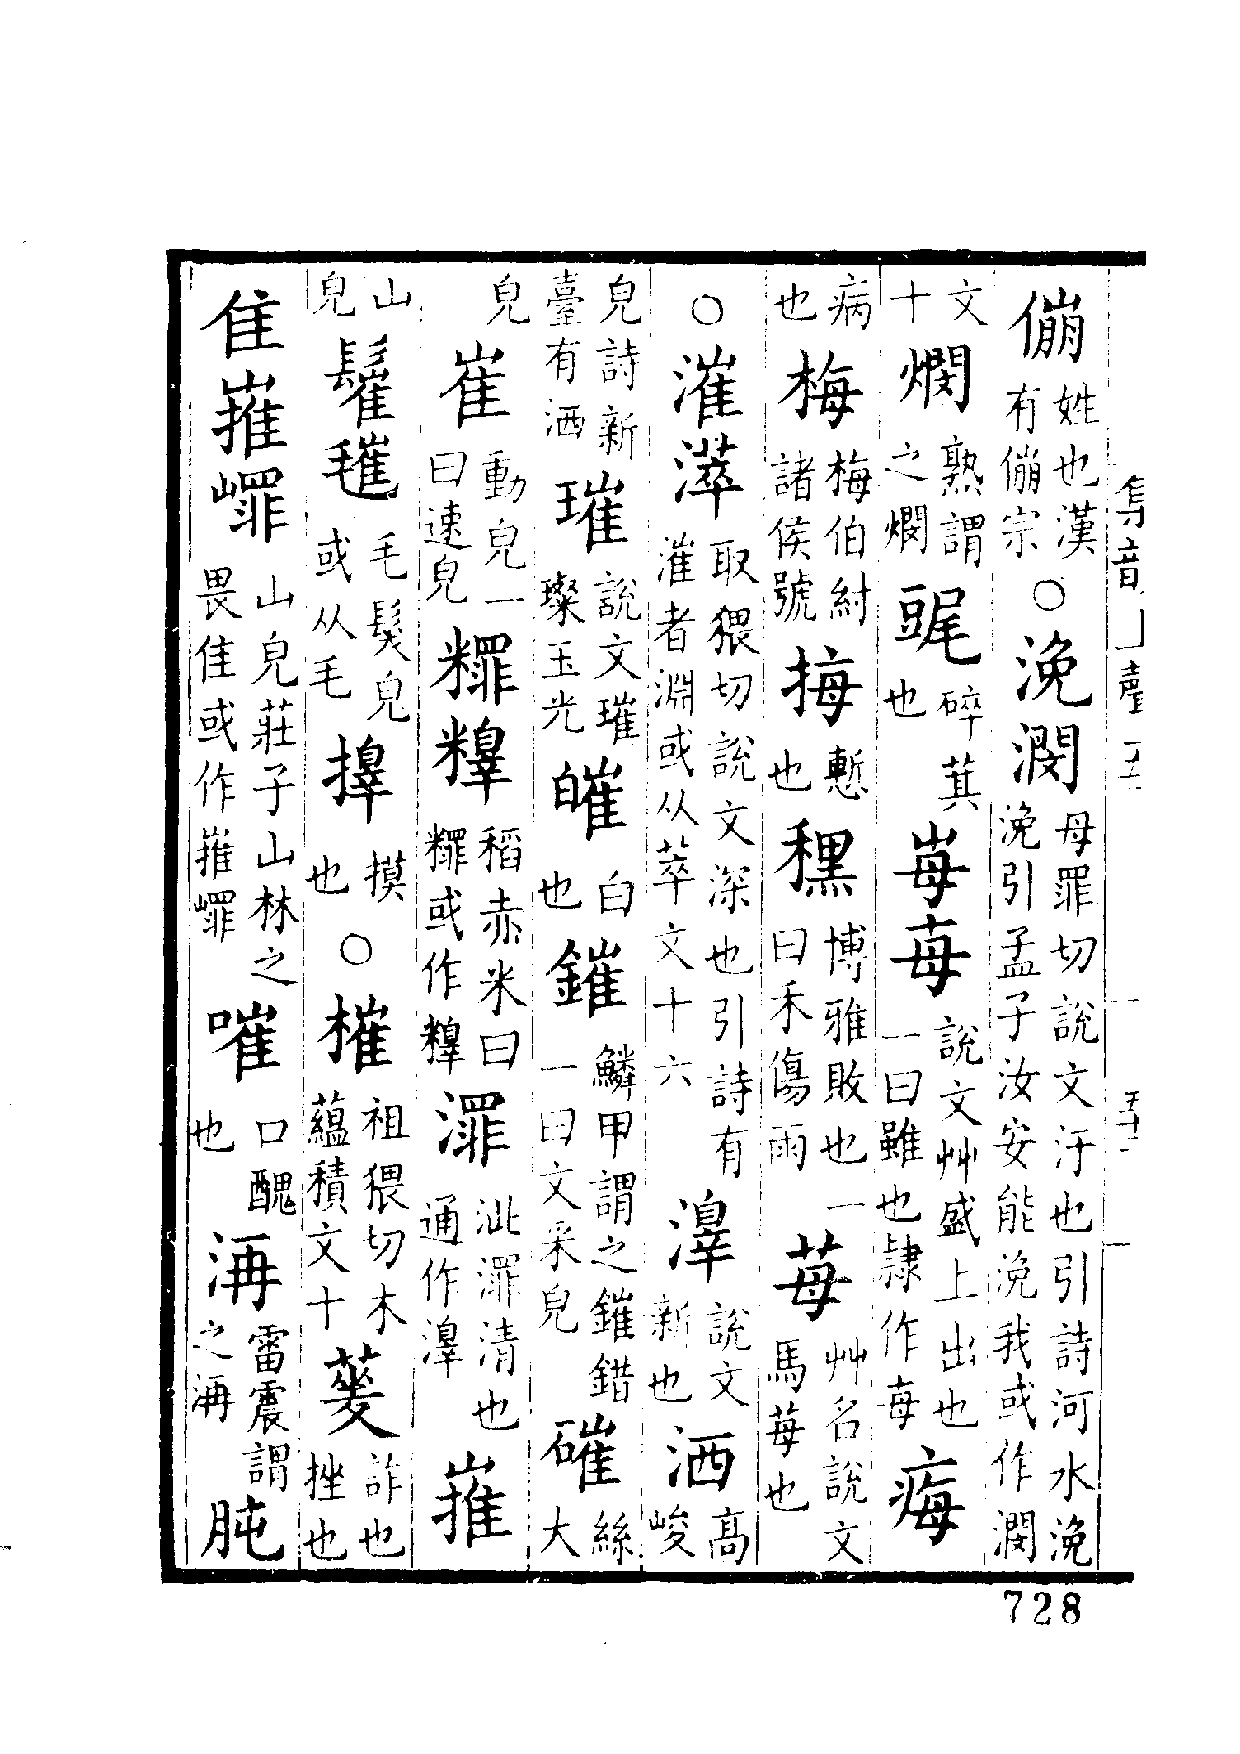 集韻上聲五 五十一
傰姓也漢有傰宗○浼潣母罪切說文汙也引詩河水浼浼引孟子汝安能浼我或作潣
文十燘熟謂之燘䜸碎萁也每說文艸盛上出也一曰雖也隸作每痗
病也梅梅伯紂諸侯號挴慙也䆀博雅敗也一曰禾傷雨莓艸名說文馬莓也
○漼濢取猥切說文深也引詩有漼者淵或从萃文十六說文新也洒高峻
皃詩新臺有洒璀說文璀璨玉光皠白也鏙鱗甲謂之鏙錯一曰文采皃磪絲大
皃崔動皃一曰速皃稻赤米曰或作泚清也通作嶊
山皃毛髮皃或从毛摸也○槯祖猥切木蘊積文十詐也挫也
隹嶊山皃莊子山林之畏隹或作嶊嗺口醜也洅雷震謂之洅肫
728